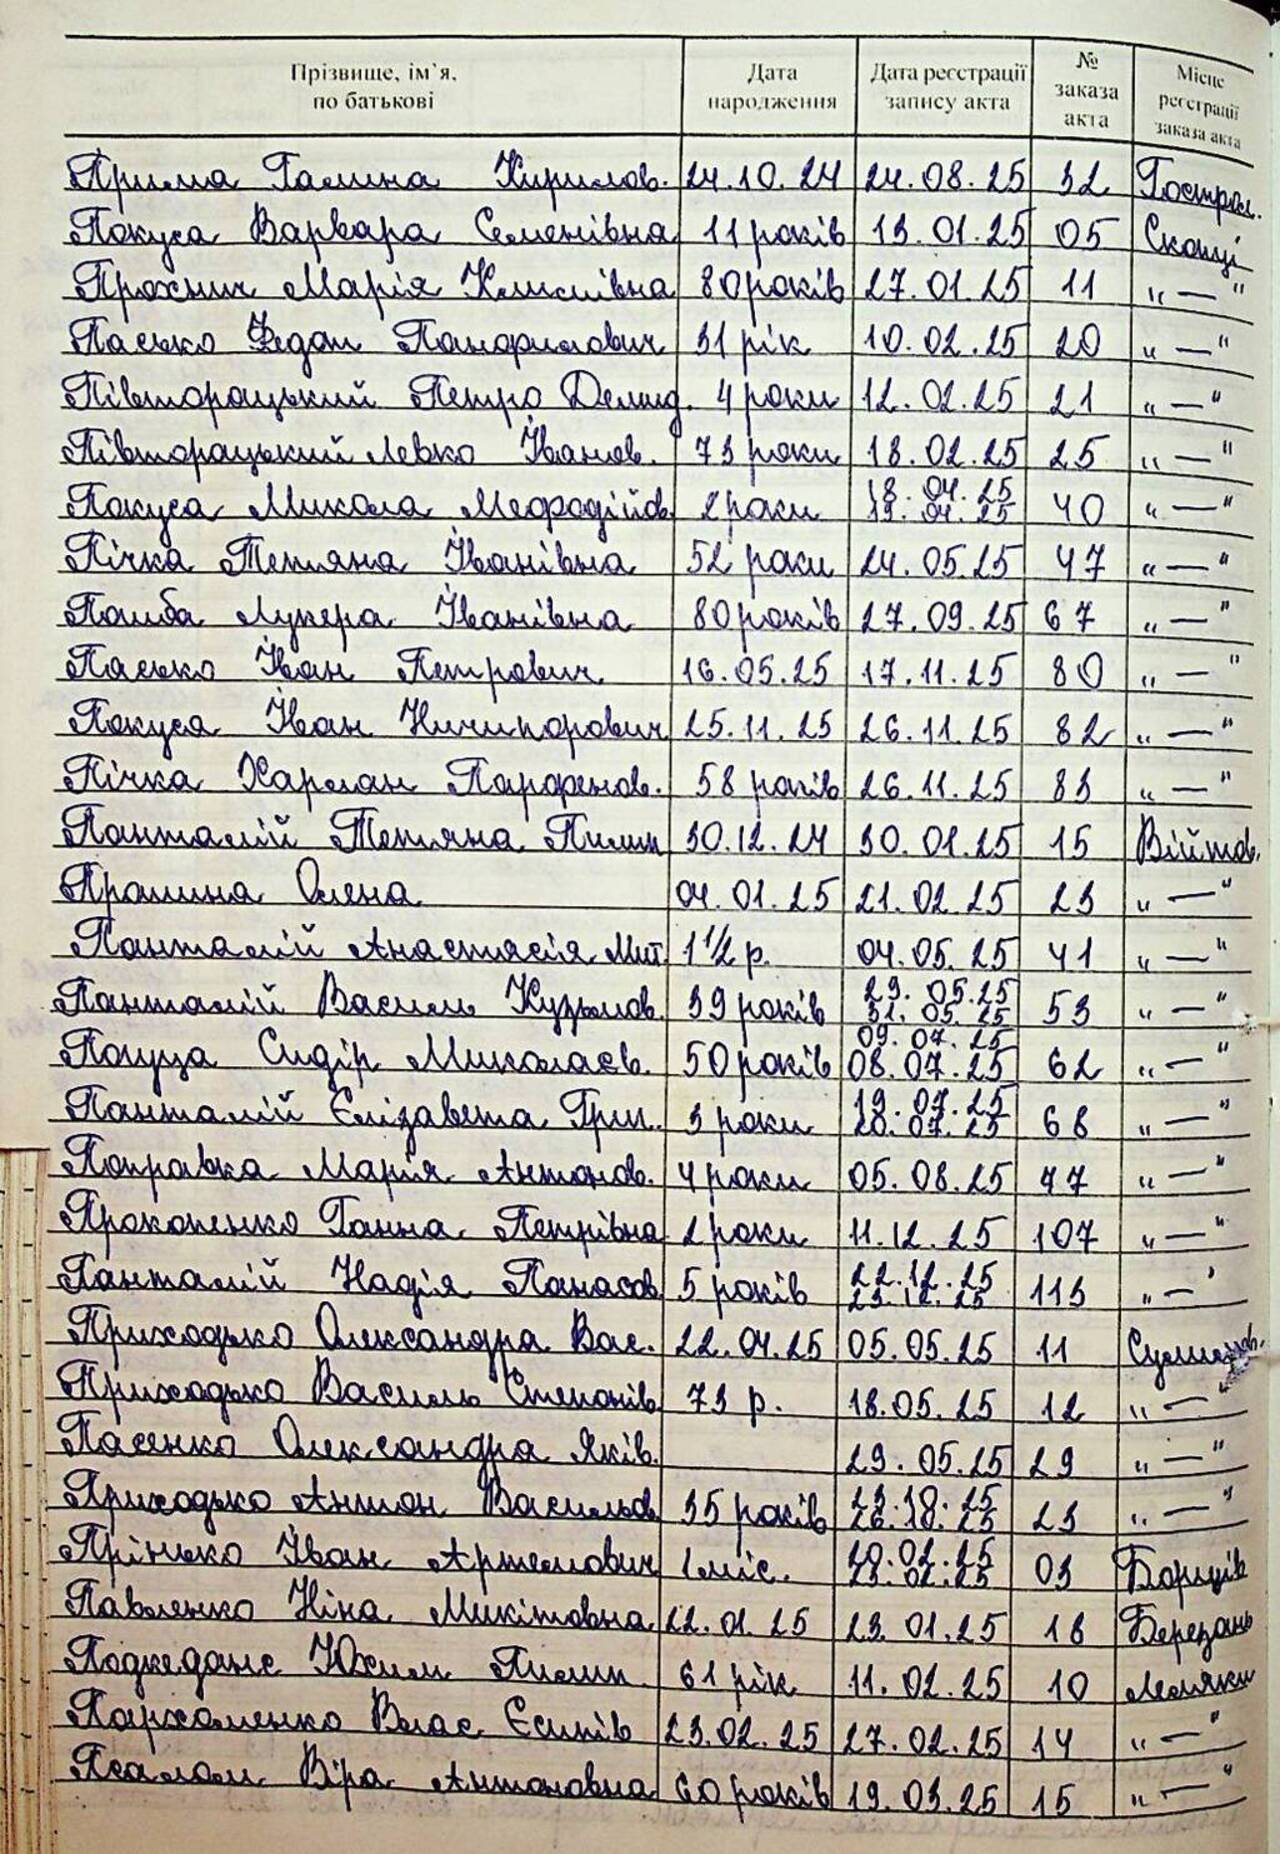 Прізвище, ім'я, по батькові | Дата народження | Дата реєстрації запису акта | № заказа акта | Місце реєстрації заказа акта
Прима Галина Кирилов. 24.10.24 24.08.25 32 Гострол.
Покуса Варвара Семенівна 11 років 13.01.25 05 Скопці
Прохнич Марія Климівна 80 років 27.01.25 11 „—"
Пасько Федот Панфилович 31 рік 10.02.25 20 „—"
Півторацький Петро Демид. 4 роки 12.02.25 21 „—"
Півторацький Левко Іванов. 73 роки 18.02.25 25 „—"
Покуса Микола Мефодійов. 2 роки 18.04.25 19.04.25 40 „—"
Пічка Тетяна Іванівна 52 роки 24.05.25 47 „—"
Лукера Іванівна 80 років 27.09.25 67 „—"
Пасько Іван Петрович 16.05.25 17.11.25 80 „—"
Покуса Іван Ничипорович 25.11.25 26.11.25 82 „—"
Пічка Харлан Парфенов. 58 років 26.11.25 83 „—"
Панталій Тетяна Пилип 30.12.24 30.01.25 15 Війтов.
Олена 04.01.25 21.02.25 23 „—"
Панталій Анастасія Мит. 1 1/2 р. 04.05.25 41 „—"
Панталій Василь Кузьмов. 39 років 29.05.25 31.05.25 53 „—"
Сидір Миколаєв. 50 років 09.07.25 08.07.25 62 „—"
Панталій Єлізавета Григ. 3 роки 19.07.25 20.07.25 68 „—"
Поправка Марія Антонов. 4 роки 05.08.25 77 „—"
Прокопенко Ганна Петрівна 2 роки 11.12.25 107 „—"
Панталій Надія Панасов. 5 років 22.12.25 23.12.25 113 „—"
Приходько Олександра Вас. 22.04.25 05.05.25 11
Приходько Василь Степанів. 73 р. 18.05.25 12 „—"
Пасенко Олександра Яків. 29.05.25 29 „—"
Приходько Антон Васильов. 35 років 23 „—"
Прінько Іван Артемович 1 міс. 03 Борщів
Павленко Ніна Микітовна 22.01.25 23.01.25 18 Березань
Юхим Пилип. 61 рік 11.02.25 10 Лемляки
Пархоменко Влас Єсипів 23.02.25 27.02.25 14 „—"
Псалом Віра Антоновна 60 років 19.03.25 15 „—"